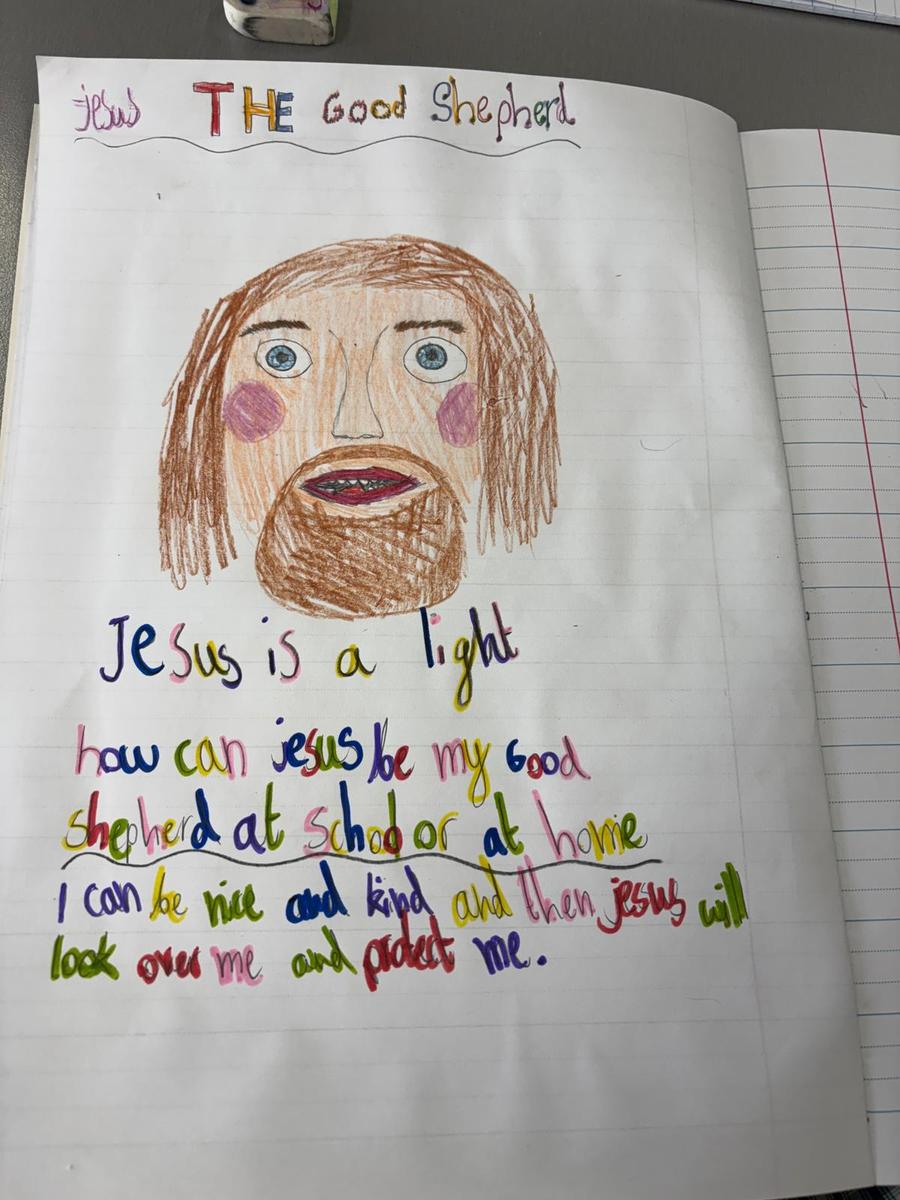 jesus THE Good Shepherd
Jesus is a light
how can jesus be my Good
shepherd at school or at home
I can be nice and kind and then jesus will
look over me and protect me.